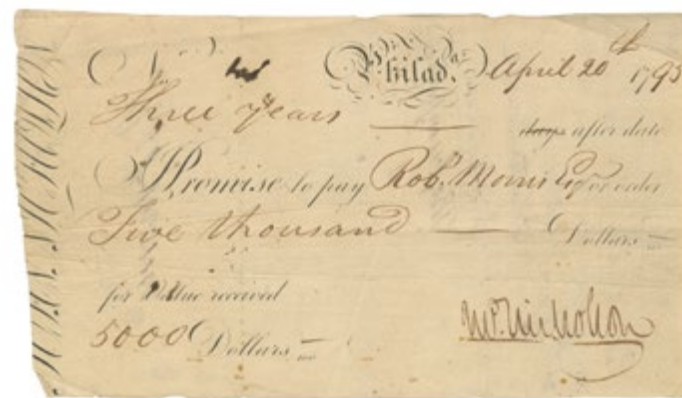 Philad.ᵃ April 20th 1795
Three years —— days after date
I Promise to pay Robt. Morris Esq or order
Five thousand —— Dollars
for Value received
5000 Dollars
Jno. Nicholson